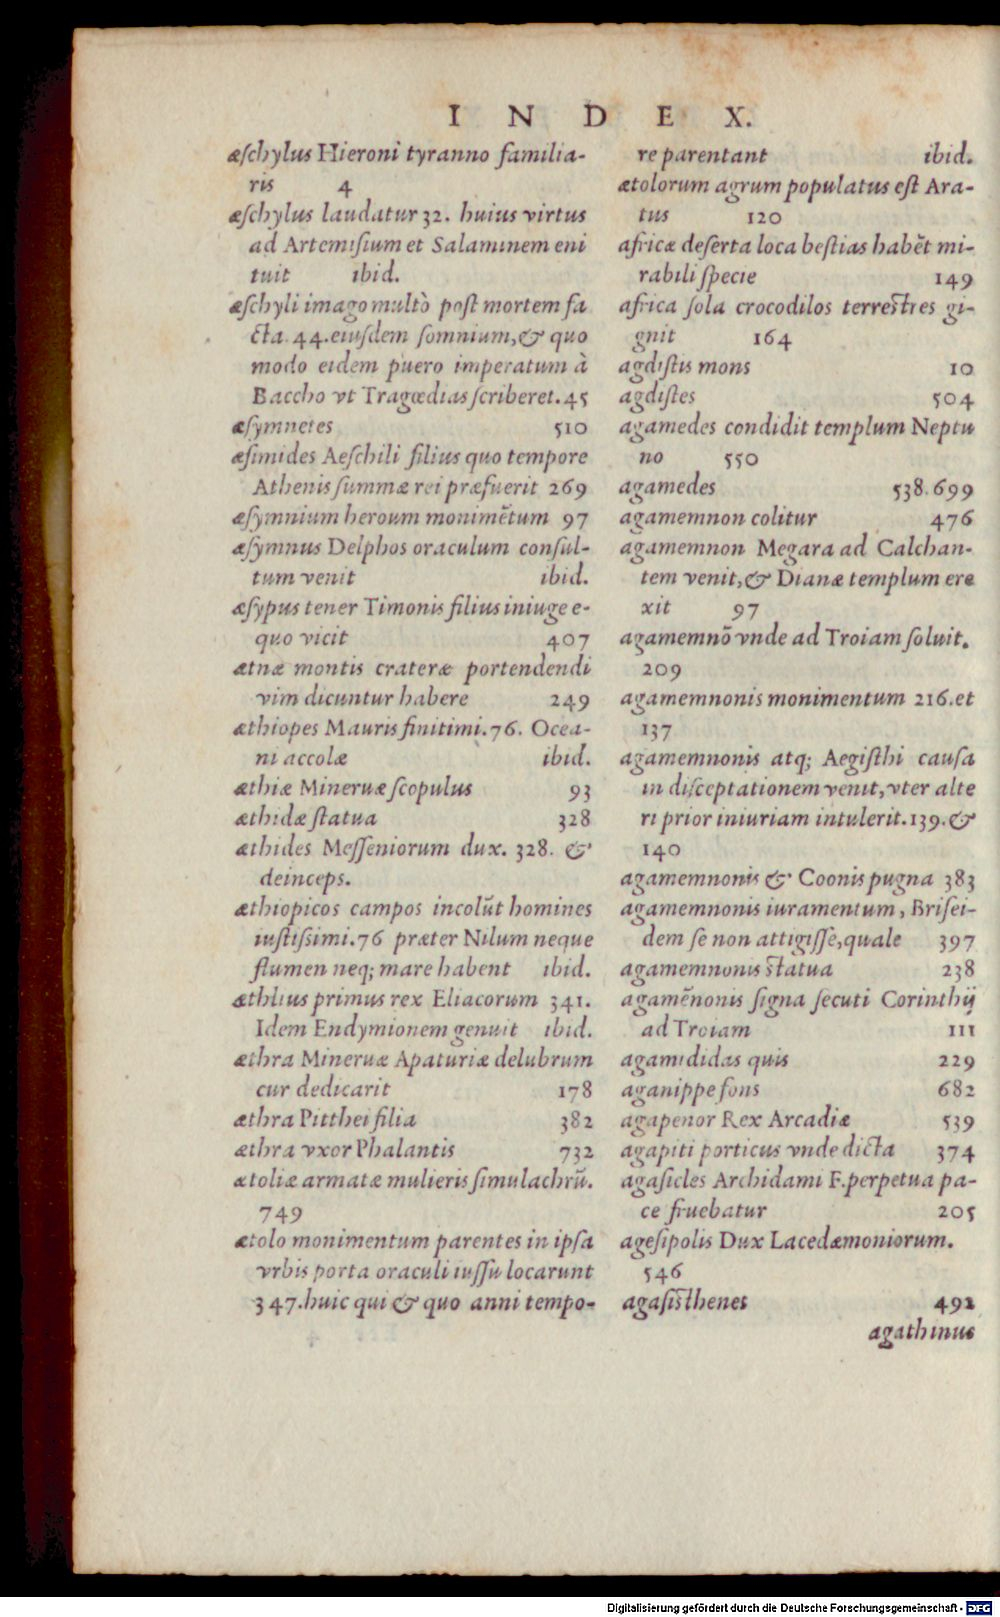 I N D E X.
æſchylus Hieroni tyranno familia-
ris 4
æſchylus laudatur 32. huius virtus
ad Artemiſium et Salaminem eni
tuit ibid.
æſchyli imago multò poſt mortem fa
cta 44. eiuſdem ſomnium, & quo
modo eidem puero imperatum à
Baccho vt Tragœdias ſcriberet. 45
æſymnetes 510
æſimides Aeſchili filius quo tempore
Athenis ſummæ rei præfuerit 269
æſymnium heroum monimẽtum 97
æſymnus Delphos oraculum conſul-
tum venit ibid.
æſypus tener Timonis filius iniuge e-
quo vicit 407
ætnæ montis crateræ portendendi
vim dicuntur habere 249
æthiopes Mauris finitimi. 76. Ocea-
ni accolæ ibid.
æthiæ Mineruæ ſcopulus 93
æthidæ ſtatua 328
æthides Meſſeniorum dux. 328. &
deinceps.
æthiopicos campos incolũt homines
iuſtiſsimi. 76 præter Nilum neque
flumen neq; mare habent ibid.
æthlius primus rex Eliacorum 341.
Idem Endymionem genuit ibid.
æthra Mineruæ Apaturiæ delubrum
cur dedicarit 178
æthra Pitthei filia 382
æthra vxor Phalantis 732
ætoliæ armatæ mulieris ſimulachrũ.
749
ætolo monimentum parentes in ipſa
vrbis porta oraculi iuſſu locarunt
347. huic qui & quo anni tempo-
re parentant ibid.
ætolorum agrum populatus eſt Ara-
tus 120
africæ deſerta loca beſtias habẽt mi-
rabili ſpecie 149
africa ſola crocodilos terreſtres gi-
gnit 164
agdiſtis mons 10
agdiſtes 504
agamedes condidit templum Neptu
no 550
agamedes 538. 699
agamemnon colitur 476
agamemnon Megara ad Calchan-
tem venit, & Dianæ templum ere
xit 97
agamemnõ vnde ad Troiam ſoluit.
209
agamemnonis monimentum 216. et
137
agamemnonis atq; Aegiſthi cauſa
in diſceptationem venit, vter alte
ri prior iniuriam intulerit. 139. &
140
agamemnonis & Coonis pugna 383
agamemnonis iuramentum, Briſei-
dem ſe non attigiſſe, quale 397
agamemnonis ſtatua 238
agamẽnonis ſigna ſecuti Corinthij
ad Troiam 111
agamididas quis 229
aganippe fons 682
agapenor Rex Arcadiæ 539
agapiti porticus vnde dicta 374
agaſicles Archidami F. perpetua pa-
ce fruebatur 205
ageſipolis Dux Lacedæmoniorum.
546
agaſiſthenes 492
agathinus
Digitalisierung gefördert durch die Deutsche Forschungsgemeinschaft - DFG